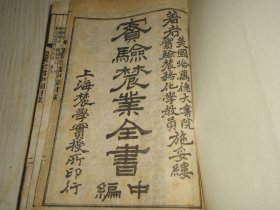 美國哈佛德大書院
著者實驗農務化學教員施妥縷
實驗農業全書
中編
上海農學實授所印行